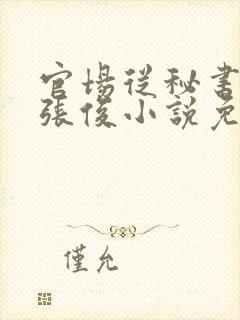 官場從秘書
張俊小說免
僅允